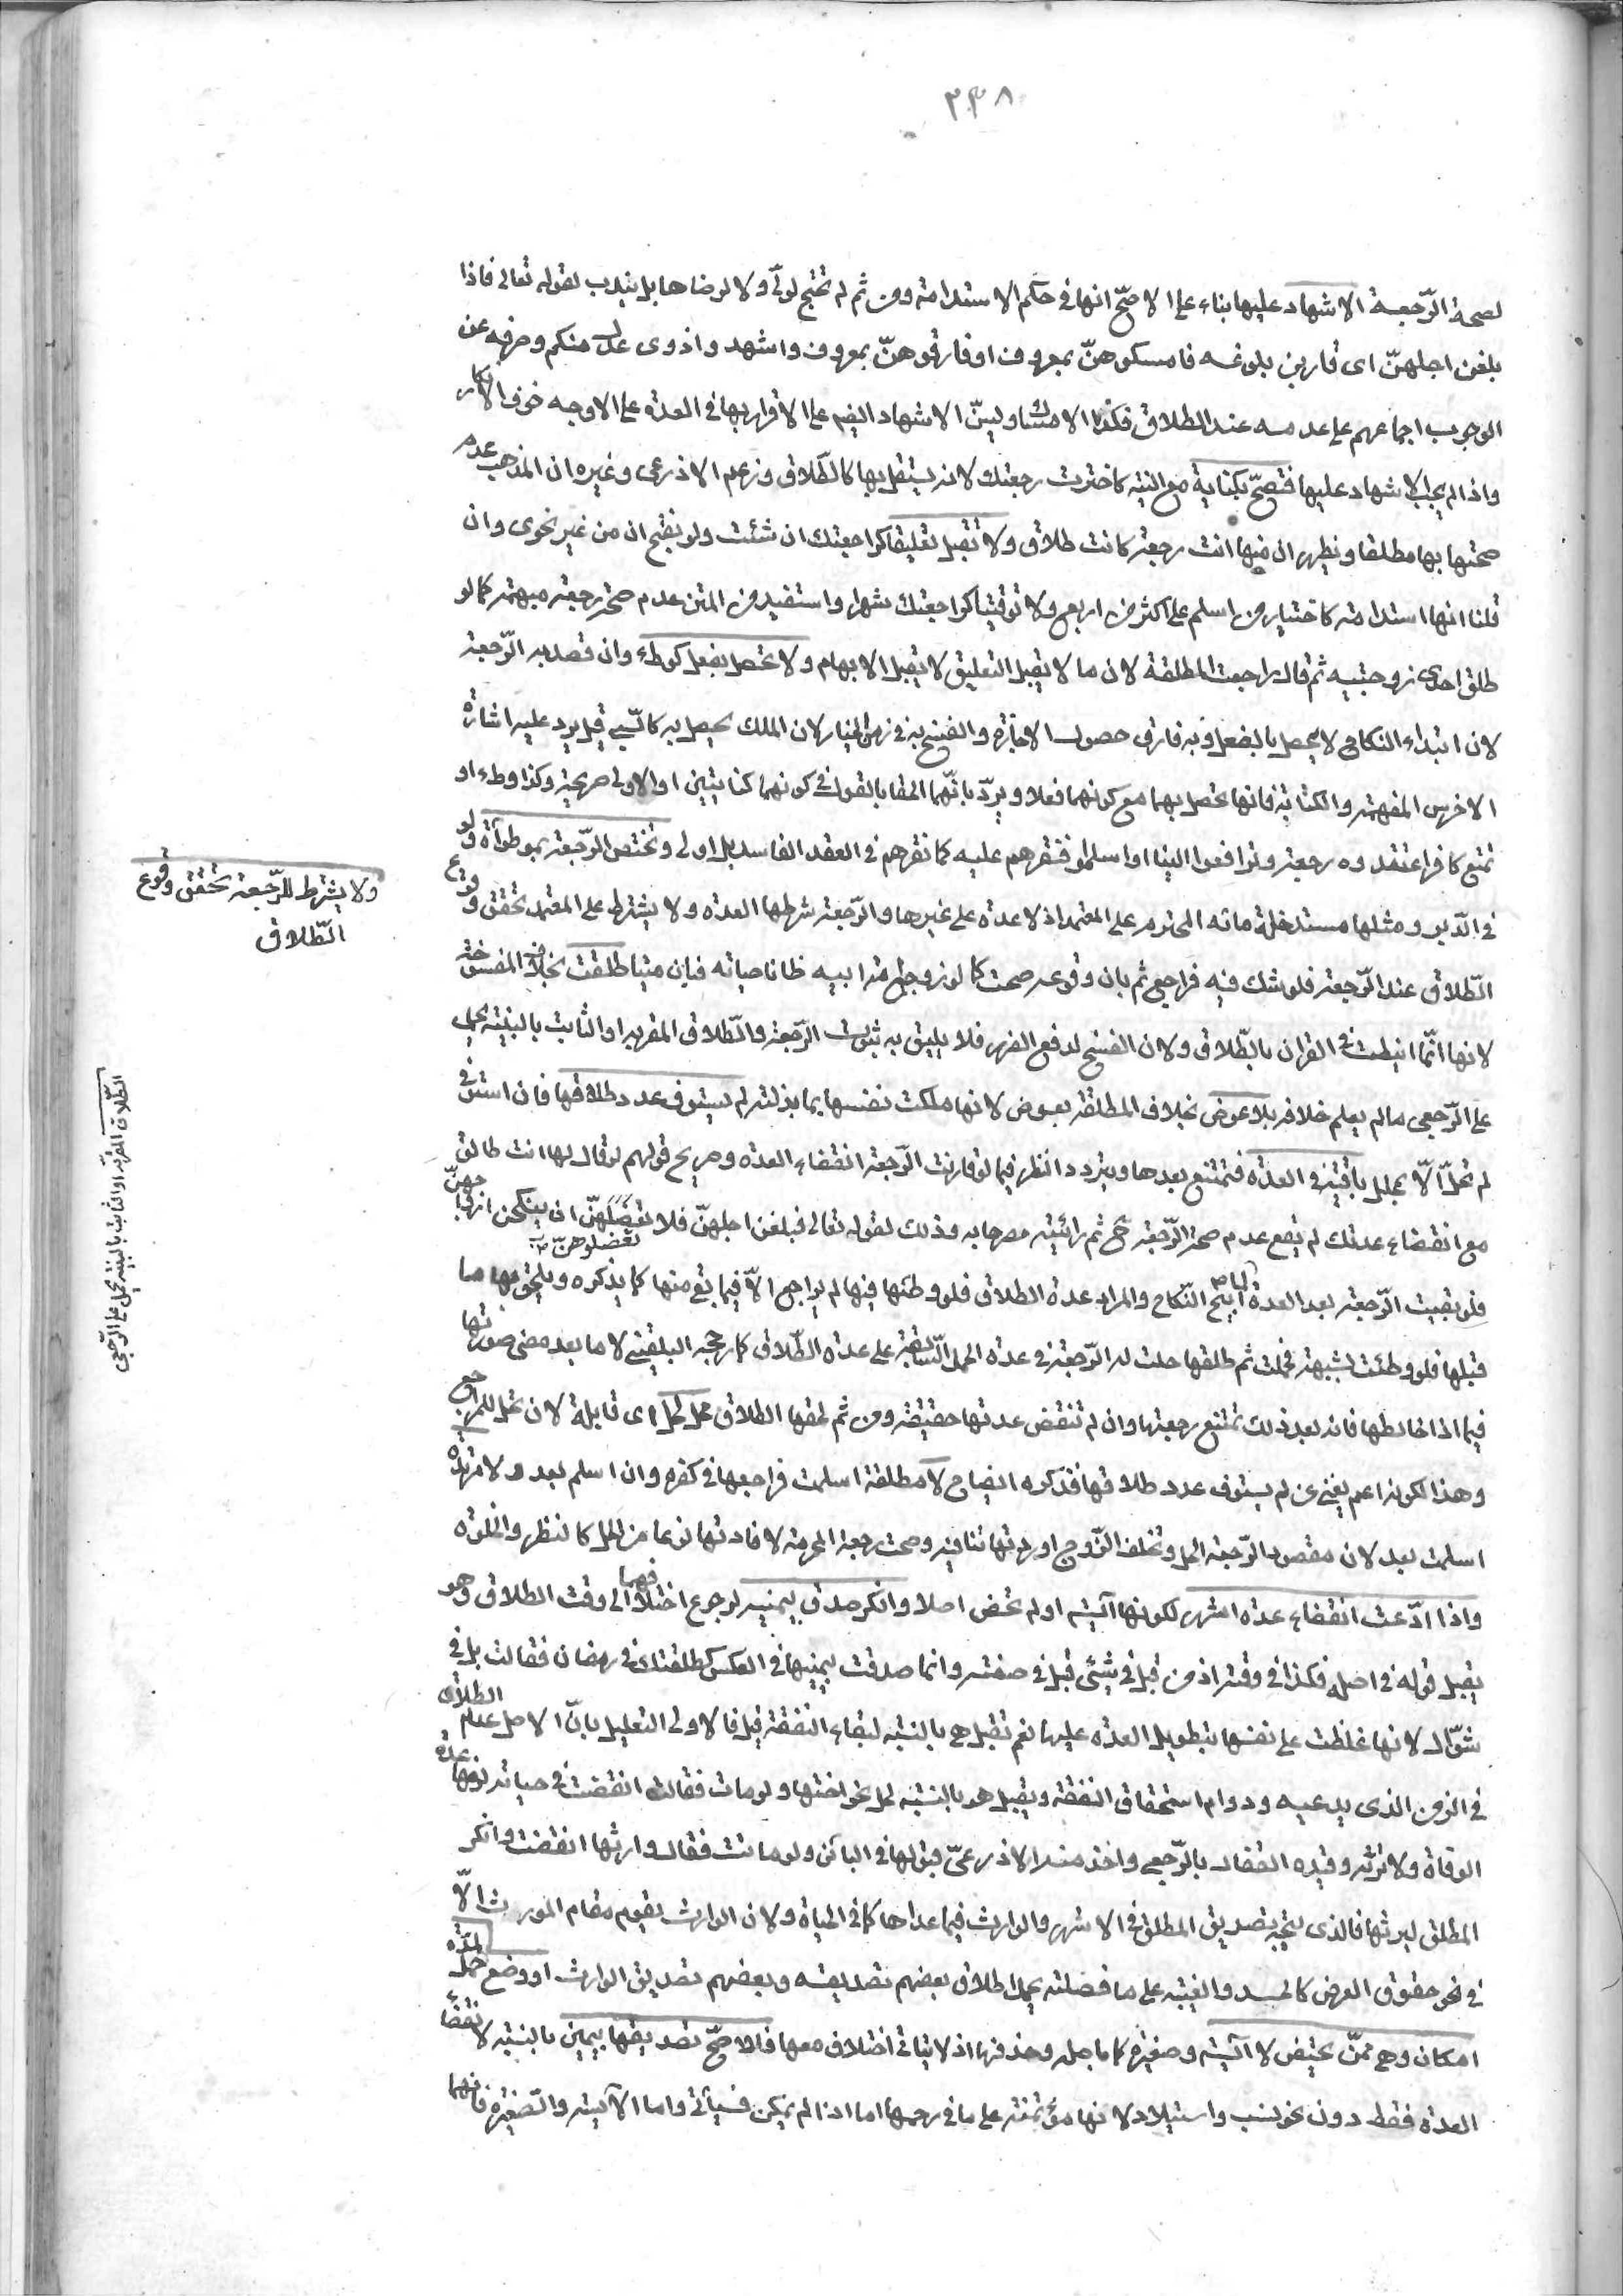 ٣٣٨
لصحة الرّجعة الاشهاد عليها بناء على الاصحّ انها في حكم الاستدامة ومن ثم لم تحتج لولّي ولا لرضاها بل يندب لقوله تعالى فاذا
بلغن اجلهنّ اى قاربن بلوغه فامسكوهنّ بمعروف او فارقوهنّ بمعروف واشهدوا ذوى عدل منكم وصرفه عن
الوجوب اجماعهم على عدمه عند الطلاق فكذا الامساك ويسنّ الاشهاد ايضم على الاقرار بها في العدة على الاوجه خوف الانكار
واذا لم يجب الاشهاد عليها فتصحّ بكناية مع النية كاخترت رجعتك لانه يستقل بها كالطّلاق وزعم الاذرعى وغيره ان المذهب عدم
صحتها بها مطلقا ويظهر ان منها انت رجعة كانت طلاق ولا تقبل تعليقا كراجعتك ان شئت ولو بفتح ان من غير نحوى وان
قلنا انها استدامة كاختيار من اسلم على اكثر من اربع ولا توقيتا كراجعتك شهرا واستفيد من المتن عدم صحة رجعة مبهمة كما لو
طلق احدى زوجتيه ثم قال راجعت المطلقة لان ما لا يقبل التعليق لا يقبل الابهام ولا تحصل بفعل كوطء وان قصد به الرّجعة
لان ابتداء النكاح لا يحصل بالفعل وبه فارق حصول الاجازة والفسخ به في زمن الخيار لان الملك يحصل به كالسّبي قيل يرد عليه اشارة
الاخرس المفهمة والكتابة فانها تحصل بهما مع كونهما فعلا ويردّ بانّهما الحقا بالقول في كونهما كنايتين او الاولى صريحة وكذا وطء او
تمتع كافر اعتقدوه رجعة وترافعوا الينا او اسلموا فنقرهم عليه كما نقرهم في العقد الفاسد بل اولى وتختص الرّجعة بموطوأة ولو
في الدّبر ومثلها مستدخلة مائه المحترم على المعتمد اذ لا عدة على غيرها والرّجعة شرطها العدة ولا يشترط على المعتمد تحقق وقوع
الطّلاق عند الرّجعة فلو شك فيه فراجع ثم بان وقوعه صحت كما لو زوج امة ابيه ظانا حياته فبان ميتا طلقت بخلاف المفسوخة
لانها انّما انيطت في القران بالطّلاق ولان الفسخ لدفع الضرر فلا يليق به ثبوت الرّجعة والطّلاق المقر به او الثابت بالبينة يحمل
على الرّجعى ما لم يعلم خلافه بلا عوض بخلاف المطلقة بعوض لانها ملكت نفسها بما بذلته لم يستوف عدد طلاقها فان استوفى
لم تحلّ الّا بمحلل باقية في العدّة فتمتنع بعدها ويتردد النظر فيما لو قارنت الرّجعة انقضاء العدة وصريح قولهم لو قال لها انت طالق
مع انقضاء عدتك لم يقع عدم صحة الرّجعة ح ثم رائيته مصرحا به وذلك لقوله تعالى فبلغن اجلهنّ فلا تعضلوهنّ ان ينكحن ازواجهنّ
فلو بقيت الرّجعة بعد العدة لما ابيح النّكاح والمراد عدة الطلاق فلو وطئها فيها لم يراجع الاّ فيما بقي منها كما يذكره ويلحق بها ما
قبلها فلو وطئت بشبهة فحملت ثم طلقها حلت له الرّجعة في عدة الحمل السّابقة على عدة الطّلاق كما رجحه البلقيني لا ما بعد مضى صورتها
فيما اذا خالطها فانه بعد ذلك تمتنع رجعتها وان لم تنقض عدتها حقيقة ومن ثم لحقها الطلاق محل لحل اى قابلة لان تحل للمراجع
وهذا لكونه اعم يغني عن لم يستوف عدد طلاقها فذكره ايضاح لا مطلقة اسلمت فراجعها في كفره وان اسلم بعد ولا مرتدة
اسلمت بعد لان مقصود الرّجعة الحل وتخلف الزّوج او ردتها تنافيه وصحت رجعة المحرمة لافادتها نوعا من الحل كالنظر والخلوة
واذا ادّعت انقضاء عدة اشهر لكونها آئسة او لم تحض اصلا وانكر صدق بيمينه لرجوع اختلافهما الى وقت الطلاق وهو
يقبل قوله في اصله فكذا في وقته اذ من قبل في شيئ قبل في صفته وانما صدقت بيمينها في العكس كطلقتك في رمضان فقالت بل في
شوّال لانها غلظت على نفسها بتطويل العدة عليها نعم تقبل هى بالنسبة لبقاء النفقة قيل فالاولى التعليل بانّ الاصل عدم الطلاق
في الزمن الذى يدعيه ودوام استحقاق النفقة ويقبل هو بالنسبة لحل نحو اختها ولو مات فقالت انقضت في حياته لزمها عدة
الوفاة ولا ترثه وقيده القفال بالرّجعى واخذ منه الاذرعىّ قبولها في البائن ولو ماتت فقال وارثها انقضت وانكر
المطلق ليرثها فالذى يتجه تصديق المطلق في الاشهر والوارث فيما عداها كما في الحياة ولان الوارث يقوم مقام المورث الاّ
في نحو حقوق العرض كالحد والغيبة على ما فصلته يحمل اطلاق بعضهم تصديقه وبعضهم تصديق الوارث او وضع حمل لمدّة
امكان وهى ممّن تحيض لا آئسة وصغيرة كما باصله وحذفها اذ لا يتاتى اختلاف معها فالاصحّ تصديقها بيمين بالنسبة لانقضاء
العدة فقط دون نحو نسب واستيلاد لانها مؤتمنة على ما في رحمها اما اذا لم يمكن فسيأتي واما الآيسة والصّغيرة فانهما
تعضلوهنّ
ولا يشترط للرّجعة تحقق وقوع
الطّلاق
الطّلاق المقر به او الثابت بالبينة يحمل على الرّجعى